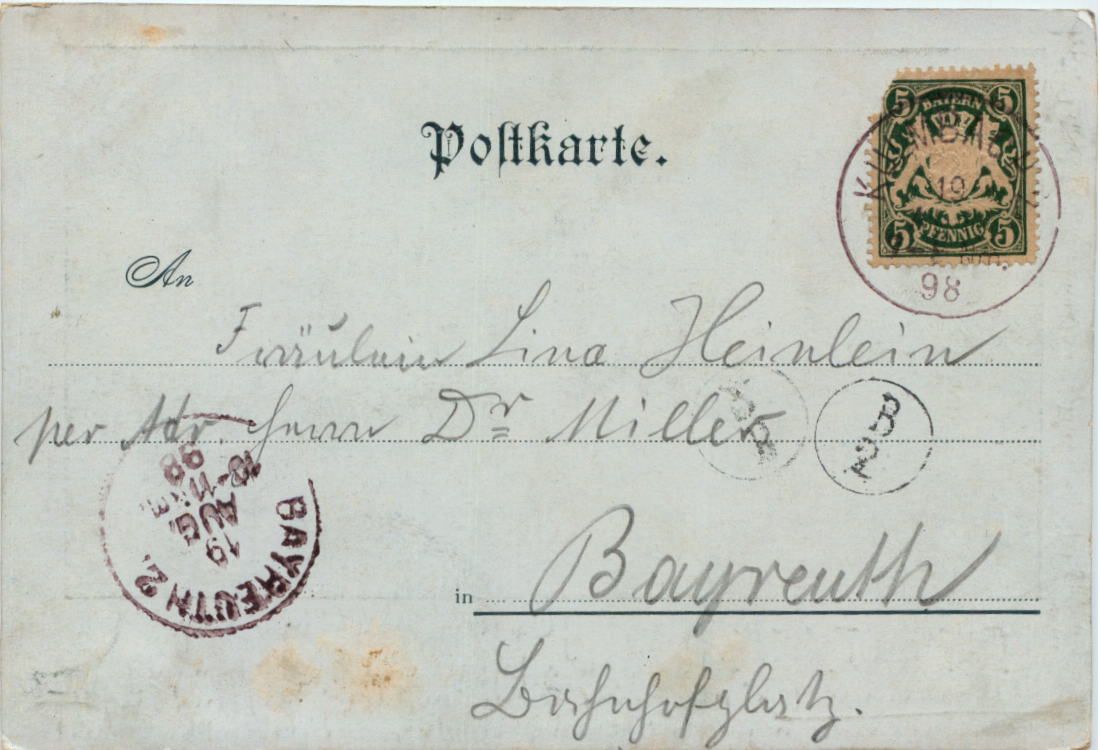 Postkarte.
5 BAYERN 5
5 PFENNIG 5
KULMBACH
19
98
An
Fräulein Lina Heinlein
per Adr. Herrn Dr Miller
B
2
BAYREUTH 2.
19
AUG.
10-11
98
in Bayreuth
Bahnhofplatz.